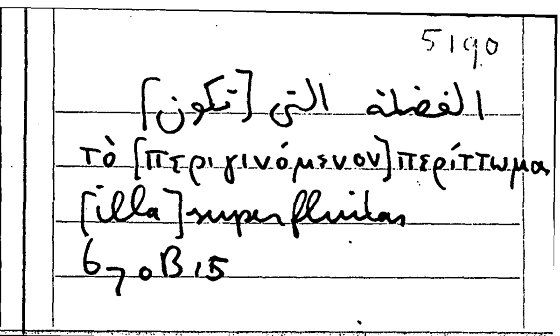 5190
الفضلة التى [تكون]
τὸ [περιγινόμενον] περίττωμα
[illa] superfluitas
670B15